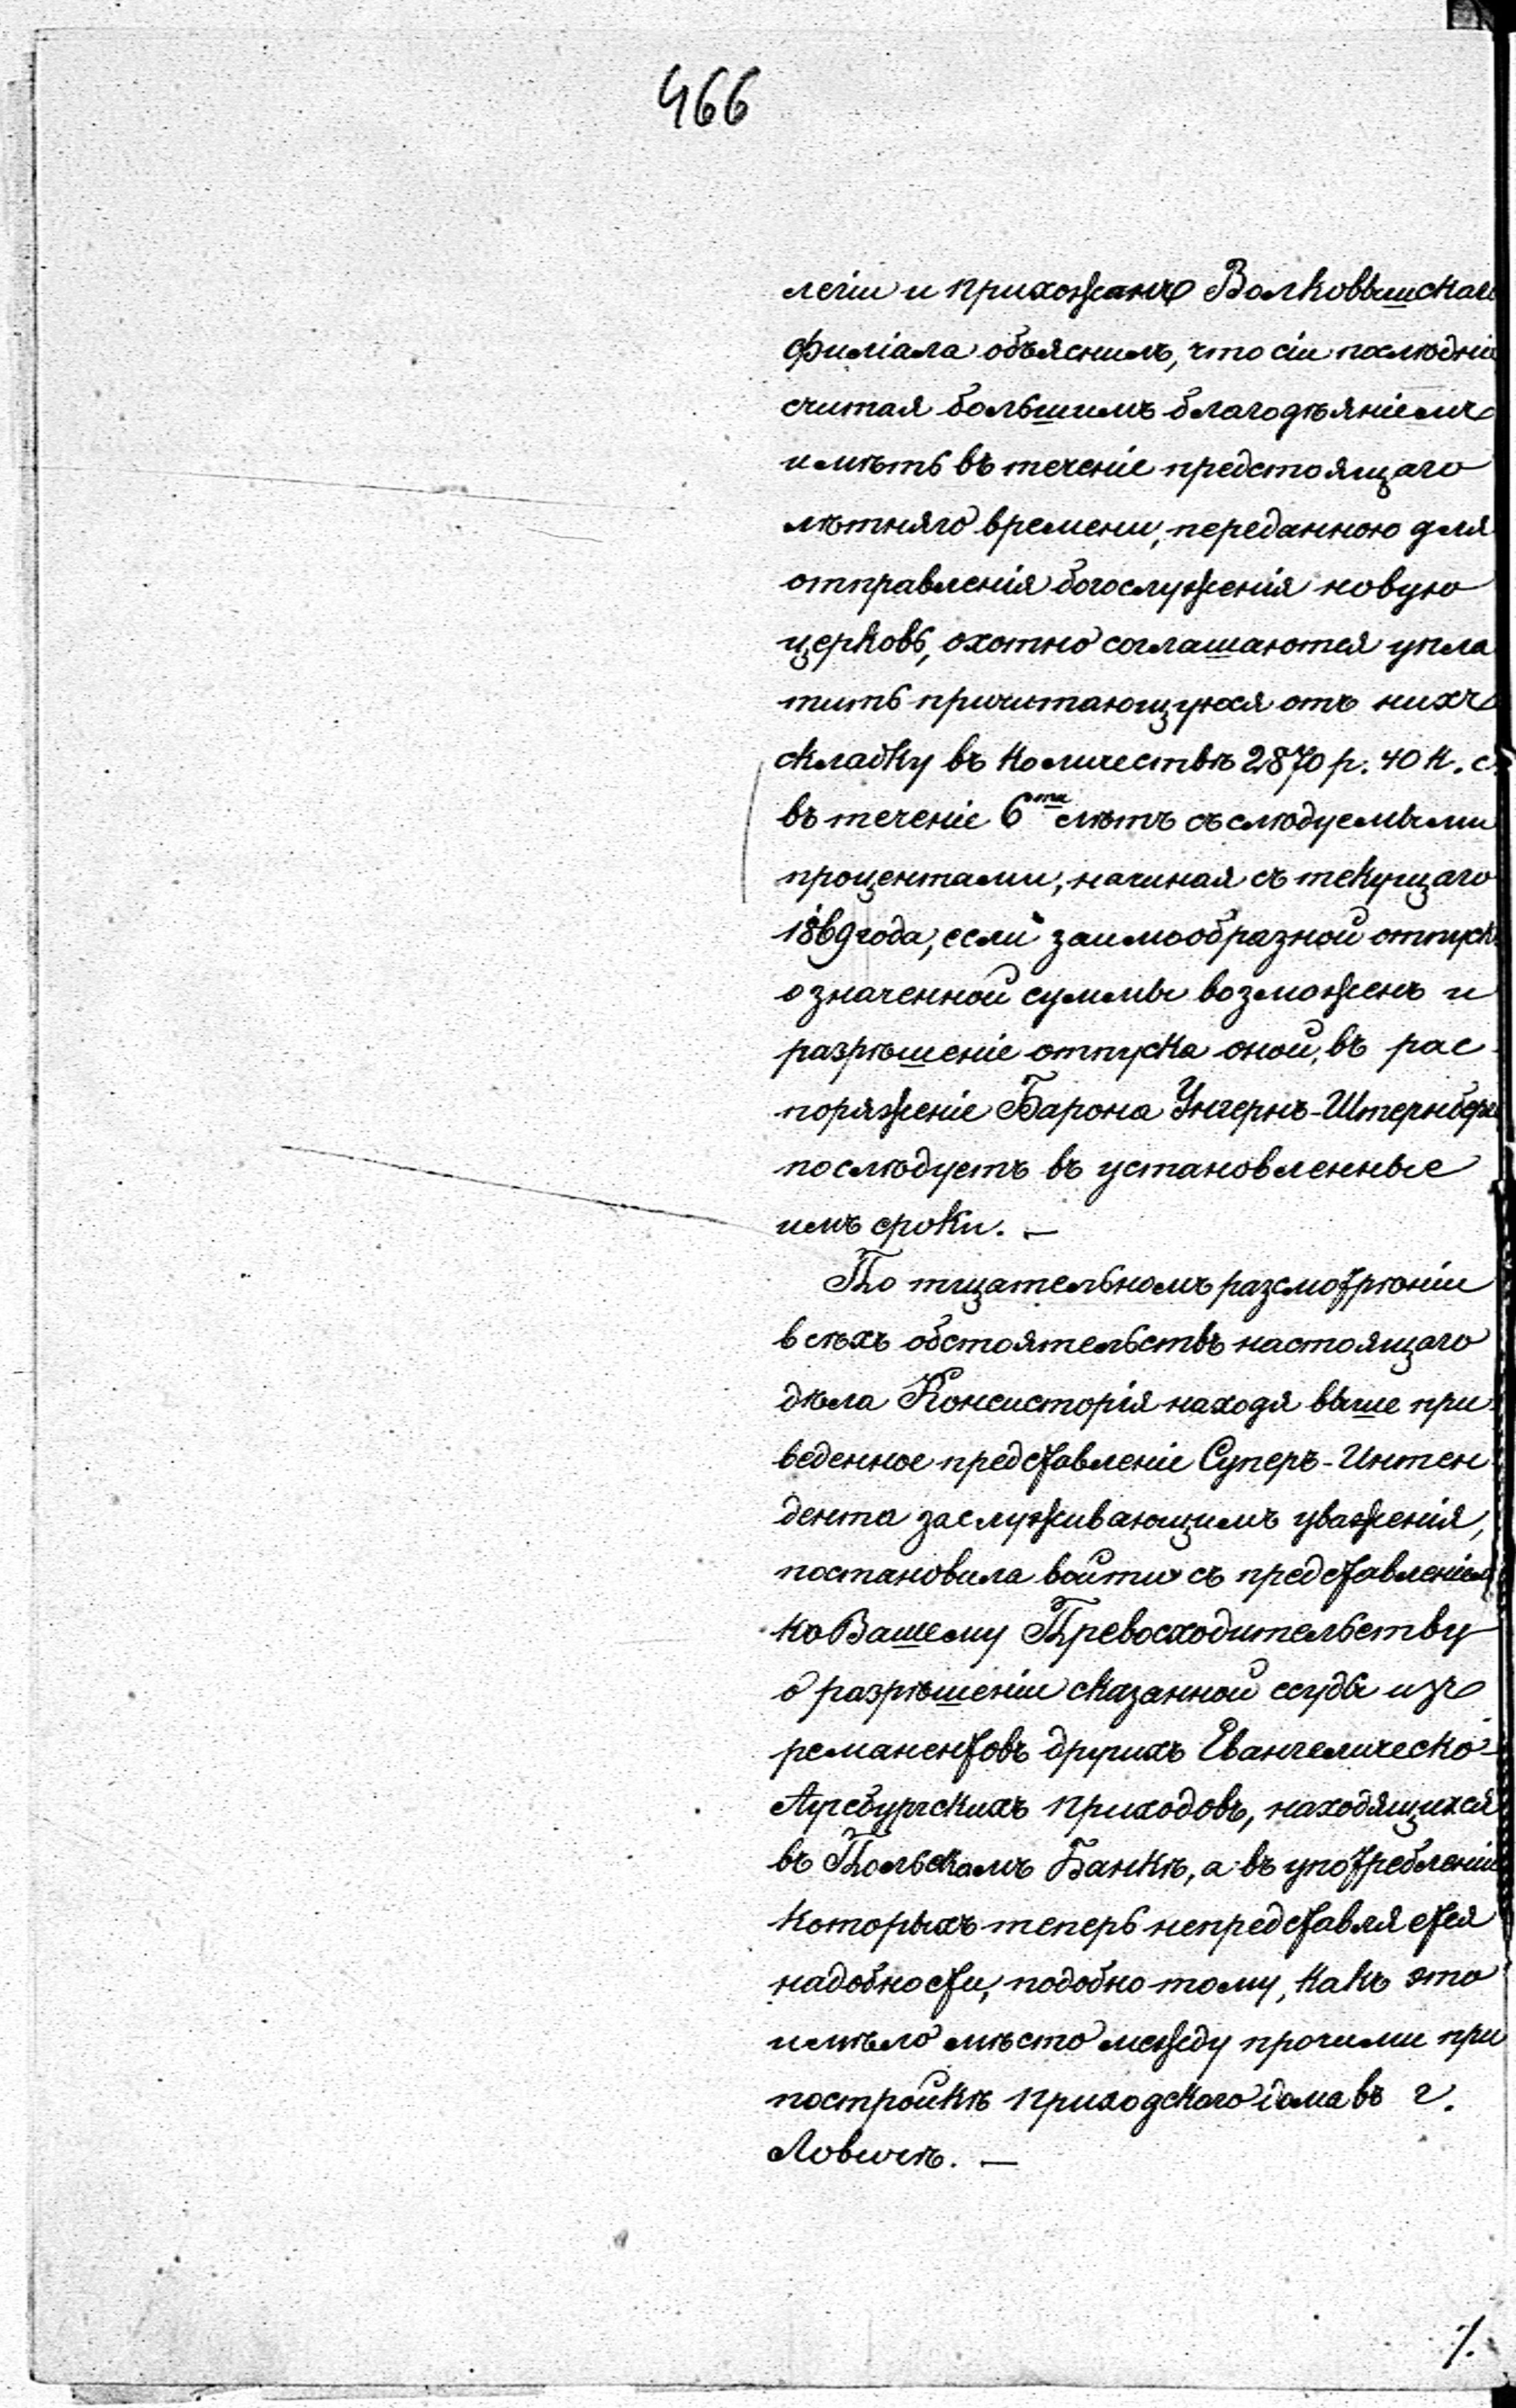 466
легіи и прихожанъ Волковышскаго
филіала объяснилъ, что сіи послѣдніе
считая большимъ благодѣяніемъ
имѣть въ теченіе предстоящаго
лѣтняго времени, переданною для
отправленія богослуженія новую
церковь, охотно соглашаются упла
тить причитающуюся отъ нихъ
складку въ количествѣ 2870 р. 40 к. с.
въ теченіе 6ти лѣтъ съ слѣдуемыми
процентами, начиная съ текущаго
1869 года, если заимообразной отпускъ
означенной суммы возможенъ и
разрѣшеніе отпуска оной, въ рас
поряженіе Барона Унгернъ-Штернберга
послѣдуетъ въ установленные
имъ сроки. —
По тщательномъ разсмотрѣніи
всѣхъ обстоятельствъ настоящаго
дѣла Консисторія находя выше при
веденное представленіе Суперъ-Интен
дента заслуживающимъ уваженія,
постановила войти съ представленіемъ
ко Вашему Превосходительству
о разрѣшеніи сказанной ссуды изъ
реманентовъ другихъ Евангелическо-
Аугсбургскихъ приходовъ, находящихся
въ Польскомъ Банкѣ, а въ употребленіи
которыхъ теперь непредставляется
надобности, подобно тому, какъ это
имѣло мѣсто между прочими при
постройкѣ приходскаго дома въ г.
Ловичѣ. —